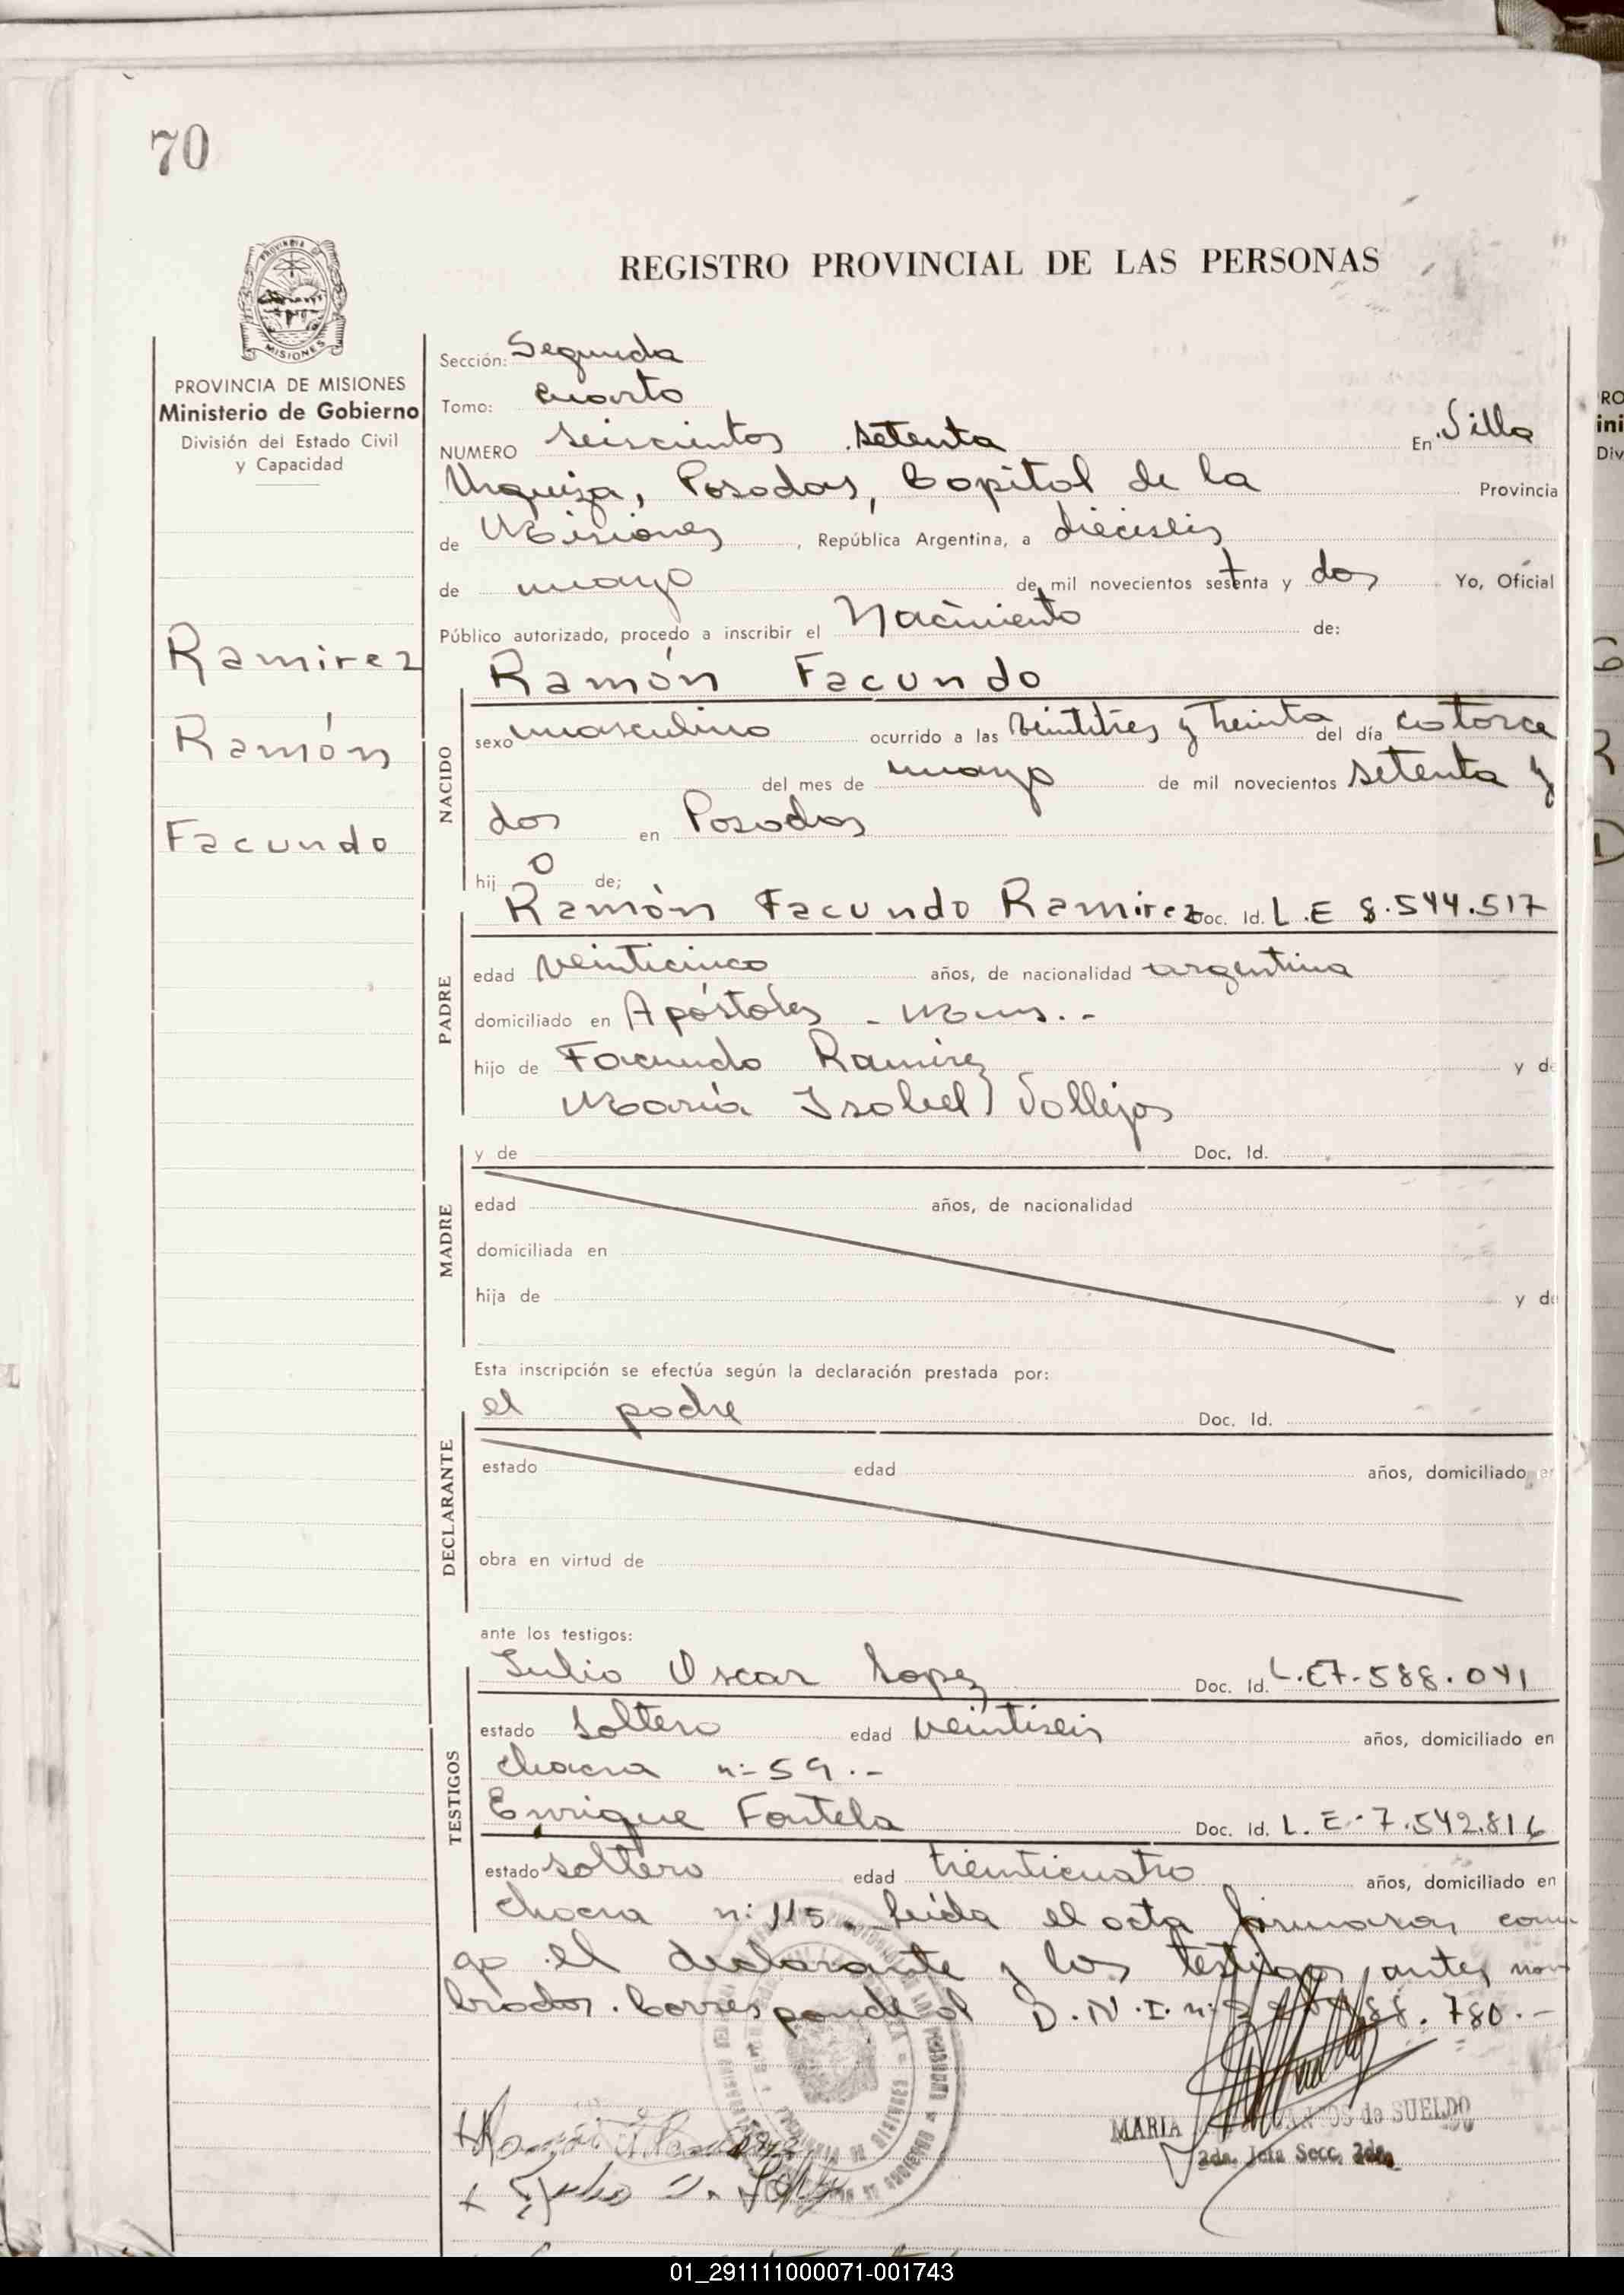 70
REGISTRO PROVINCIAL DE LAS PERSONAS
PROVINCIA DE MISIONES
Ministerio de Gobierno
División del Estado Civil
y Capacidad
Ramirez
Ramón
Facundo
Sección: Segunda
Tomo: cuarto
NUMERO seiscientos setenta En Villa
Urquiza, Posadas, Capital de la Provincia
de Misiones, República Argentina, a dieciseis
de mayo de mil novecientos setenta y dos Yo, Oficial
Público autorizado, procedo a inscribir el Nacimiento de:
Ramón Facundo
NACIDO
sexo masculino ocurrido a las veintitres y treinta del día catorce
del mes de mayo de mil novecientos setenta y
dos en Posadas
hijo de;
Ramón Facundo Ramirez Doc. Id. L.E 8.544.517
PADRE
edad veinticinco años, de nacionalidad argentina
domiciliado en Apóstoles - Mnes. -
hijo de Facundo Ramirez y de
María Isabel Vallejos
MADRE
y de Doc. Id.
edad años, de nacionalidad
domiciliada en
hija de y de
Esta inscripción se efectúa según la declaración prestada por:
el padre Doc. Id.
DECLARANTE
estado edad años, domiciliado en
obra en virtud de
ante los testigos:
TESTIGOS
Julio Oscar Lopez Doc. Id. L.E 7.588.041
estado soltero edad veintiseis años, domiciliado en
chacra n:- 59.-
Enrique Fontela Doc. Id. L.E.- 7.542.816
estado soltero edad treinticuatro años, domiciliado en
chacra n: 115. Leída el acta firmaron conmi
go el declarante y los testigos antes nom
brados. Corresponde al D.N.I. n: 780.-
MARIA de SUELDO
2da. Jefa Secc. 2da.
01_291111000071-001743